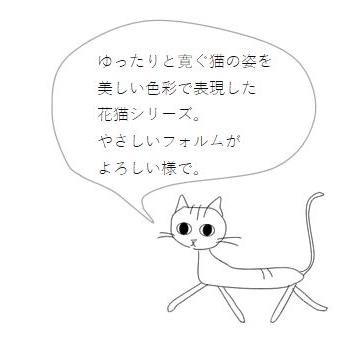 ゆったりと寛ぐ猫の姿を
美しい色彩で表現した
花猫シリーズ。
やさしいフォルムが
よろしい様で。